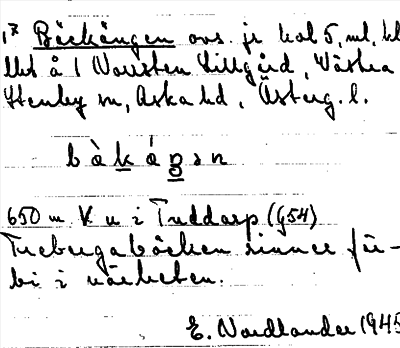 Bäckängen avs. jr kol 5, ml, kl
llet å 1 Norrsten Lillgård, Västra
Stenby sn, Aska hd, Österg. l.
b à k á ŋ ə n
650 m V u i Tuddarp (G54)
Trebergabäcken rinner för-
bi i närheten.
E. Nordlander 1945